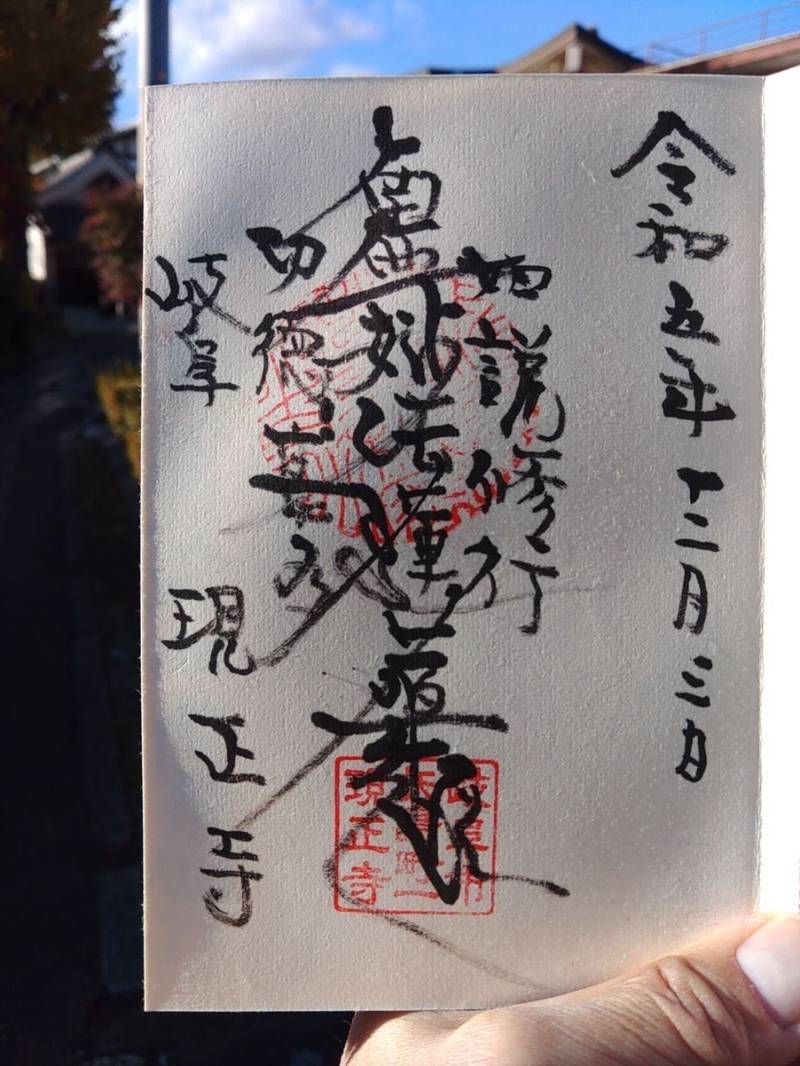 令和五年十二月三日
如説修行
南無妙法蓮華経
功徳甚多
岐阜 現正寺
岐阜市
現正寺